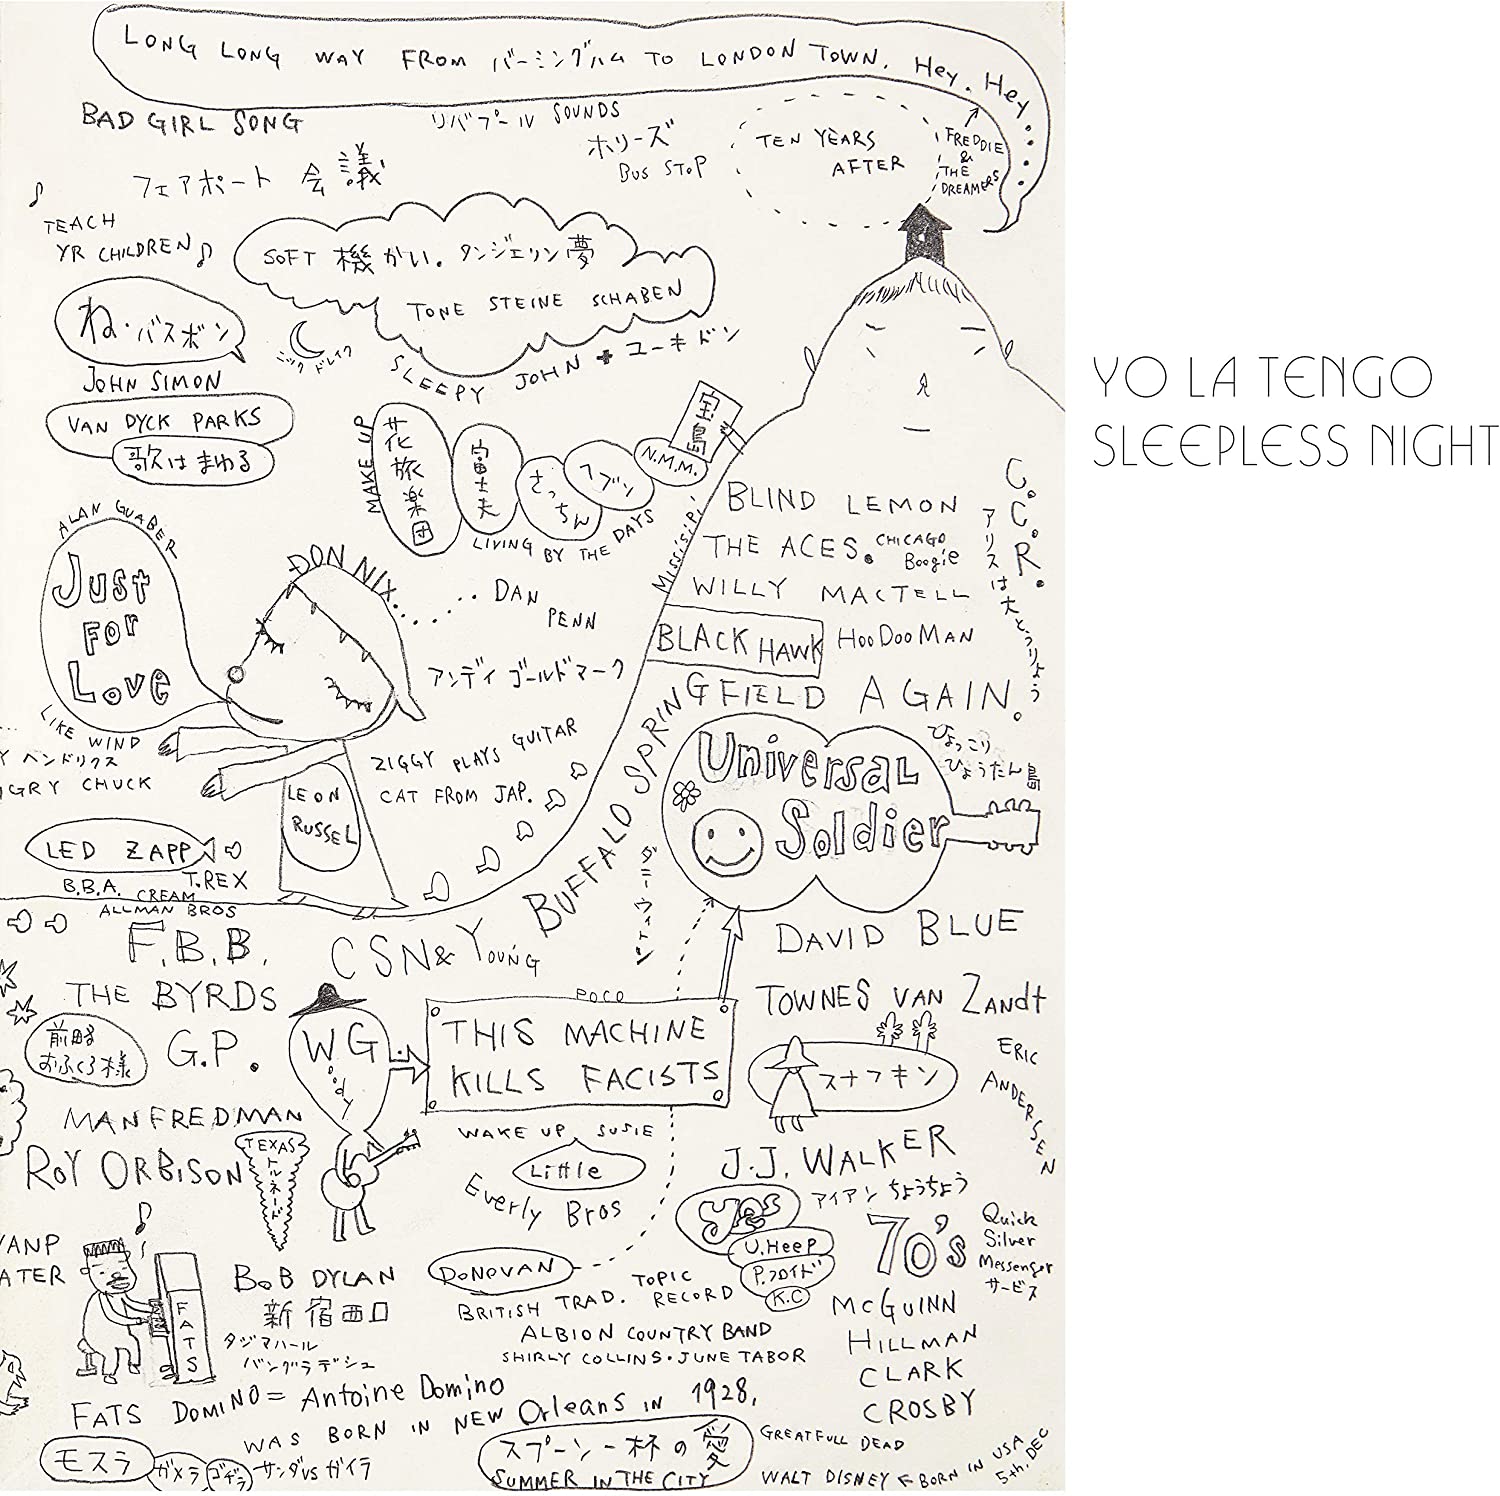 LONG LONG WAY FROM バーミングハム TO LONDON TOWN. Hey. Hey....
BAD GIRL SONG
リバプール SOUNDS
ホリーズ
BUS STOP
TEN YEARS
AFTER
FREDDIE
&
THE
DREAMERS
フェアポート 会議
TEACH
YR CHILDREN
SOFT 機かい。タンジェリン夢
TONE STEINE SCHABEN
ね・バスボン
ニック ドレイク
SLEEPY JOHN + ユーキドン
JOHN SIMON
VAN DYCK PARKS
歌はまわる
YO LA TENGO
SLEEPLESS NIGHT
MAKE UP
花旅楽団
富士夫
さっちん
ヘブン
N.M.M.
宝島
LIVING BY THE DAYS
MissisiPi
BLIND LEMON
THE ACES. CHICAGO
Boogie
WILLY MACTELL
BLACK HAWK
HooDooMAN
C.C.R.
アリスは大とうりょう
ALAN GUABER
JUST
FOR
LOVE
LIKE WIND
DON NIX.....
DAN
PENN
アンディ ゴールドマーク
BUFFALO SPRINGFIELD AGAIN.
Y ヘンドリクス
GRY CHUCK
ZIGGY PLAYS GUITAR
CAT FROM JAP.
LEON
RUSSEL
UNIVERSAL
SoLdier
ひょっこり
ひょうたん島
LED ZAPP
B.B.A. CREAM T.REX
ALLMAN BROS
ダニーウィトン
F.B.B.
CSN& YOUNG
DAVID BLUE
THE BYRDS
POCO
TOWNES VAN ZANdt
前略
おふくろ様
G.P.
W G.
oody
THIS MACHINE
KILLS FACISTS
スナフキン
ERIC
ANDERSEN
MANFREDMAN
WAKE UP SUSIE
Little
Everly Bros
J.J. WALKER
ROY ORBISON
TEXAS
トルネード
yes
アイアン ちょうちょう
U.HeeP
P.フロイド
K.C
70's
Quick
Silver
Messenger
サービス
VANP
ATER
FATS
BoB DYLAN
新宿西口
タジマハール
バングラデシュ
DONOVAN
TOPIC
RECORD
BRITISH TRAD.
ALBION COUNTRY BAND
SHIRLY COLLINS・JUNE TABOR
MCGUINN
HILLMAN
CLARK
CROSBY
FATS DOMINO = Antoine Domino
WAS BORN IN NEW Orleans IN 1928,
モスラ
ガメラ
ゴヂラ
サンダVS ガイラ
スプーン一杯の愛
SUMMER IN THE CITY
GREATFULL DEAD
WALT DISNEY BORN IN USA
5th. DEC